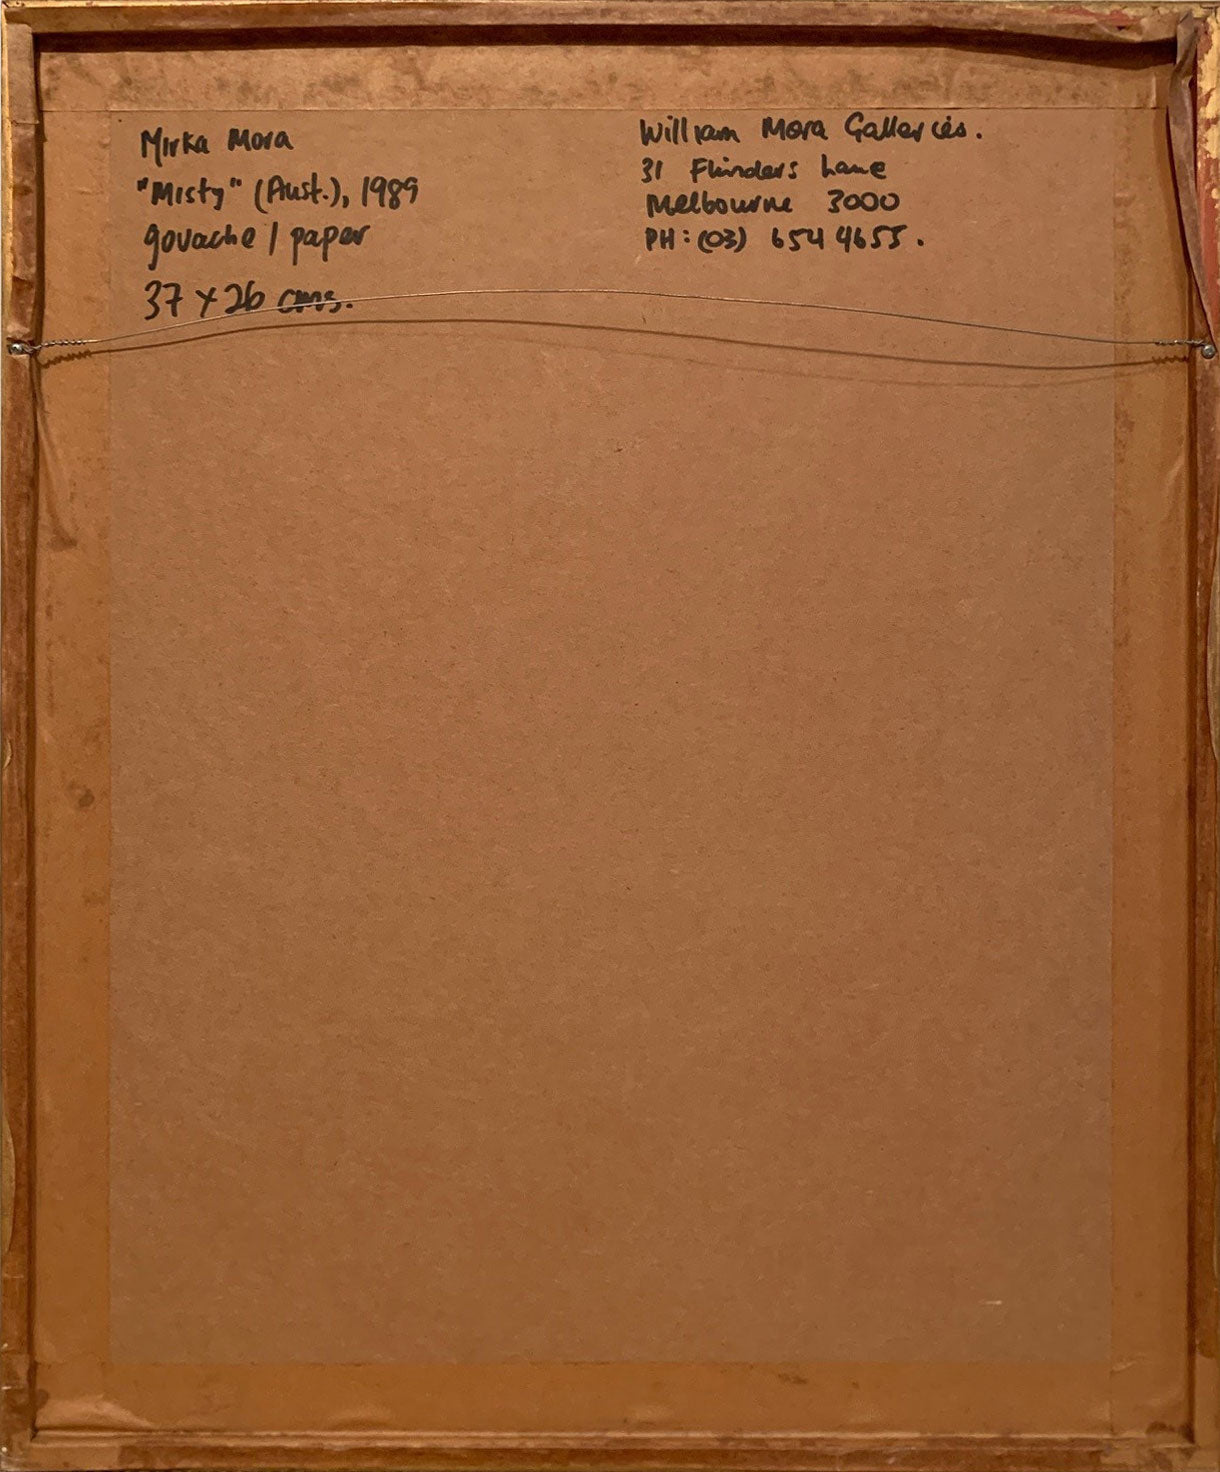 Mirka Mora
"Misty" (Aust.), 1989
gouache / paper
37 x 26 cms.
William Mora Galleries.
31 Flinders Lane
Melbourne 3000
PH: (03) 654 4655.